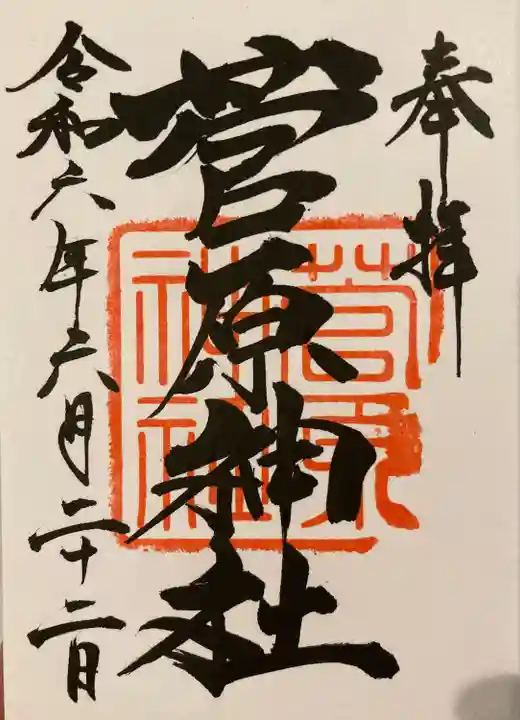 奉拝
菅原神社
令和六年六月二十二日
菅原
神社